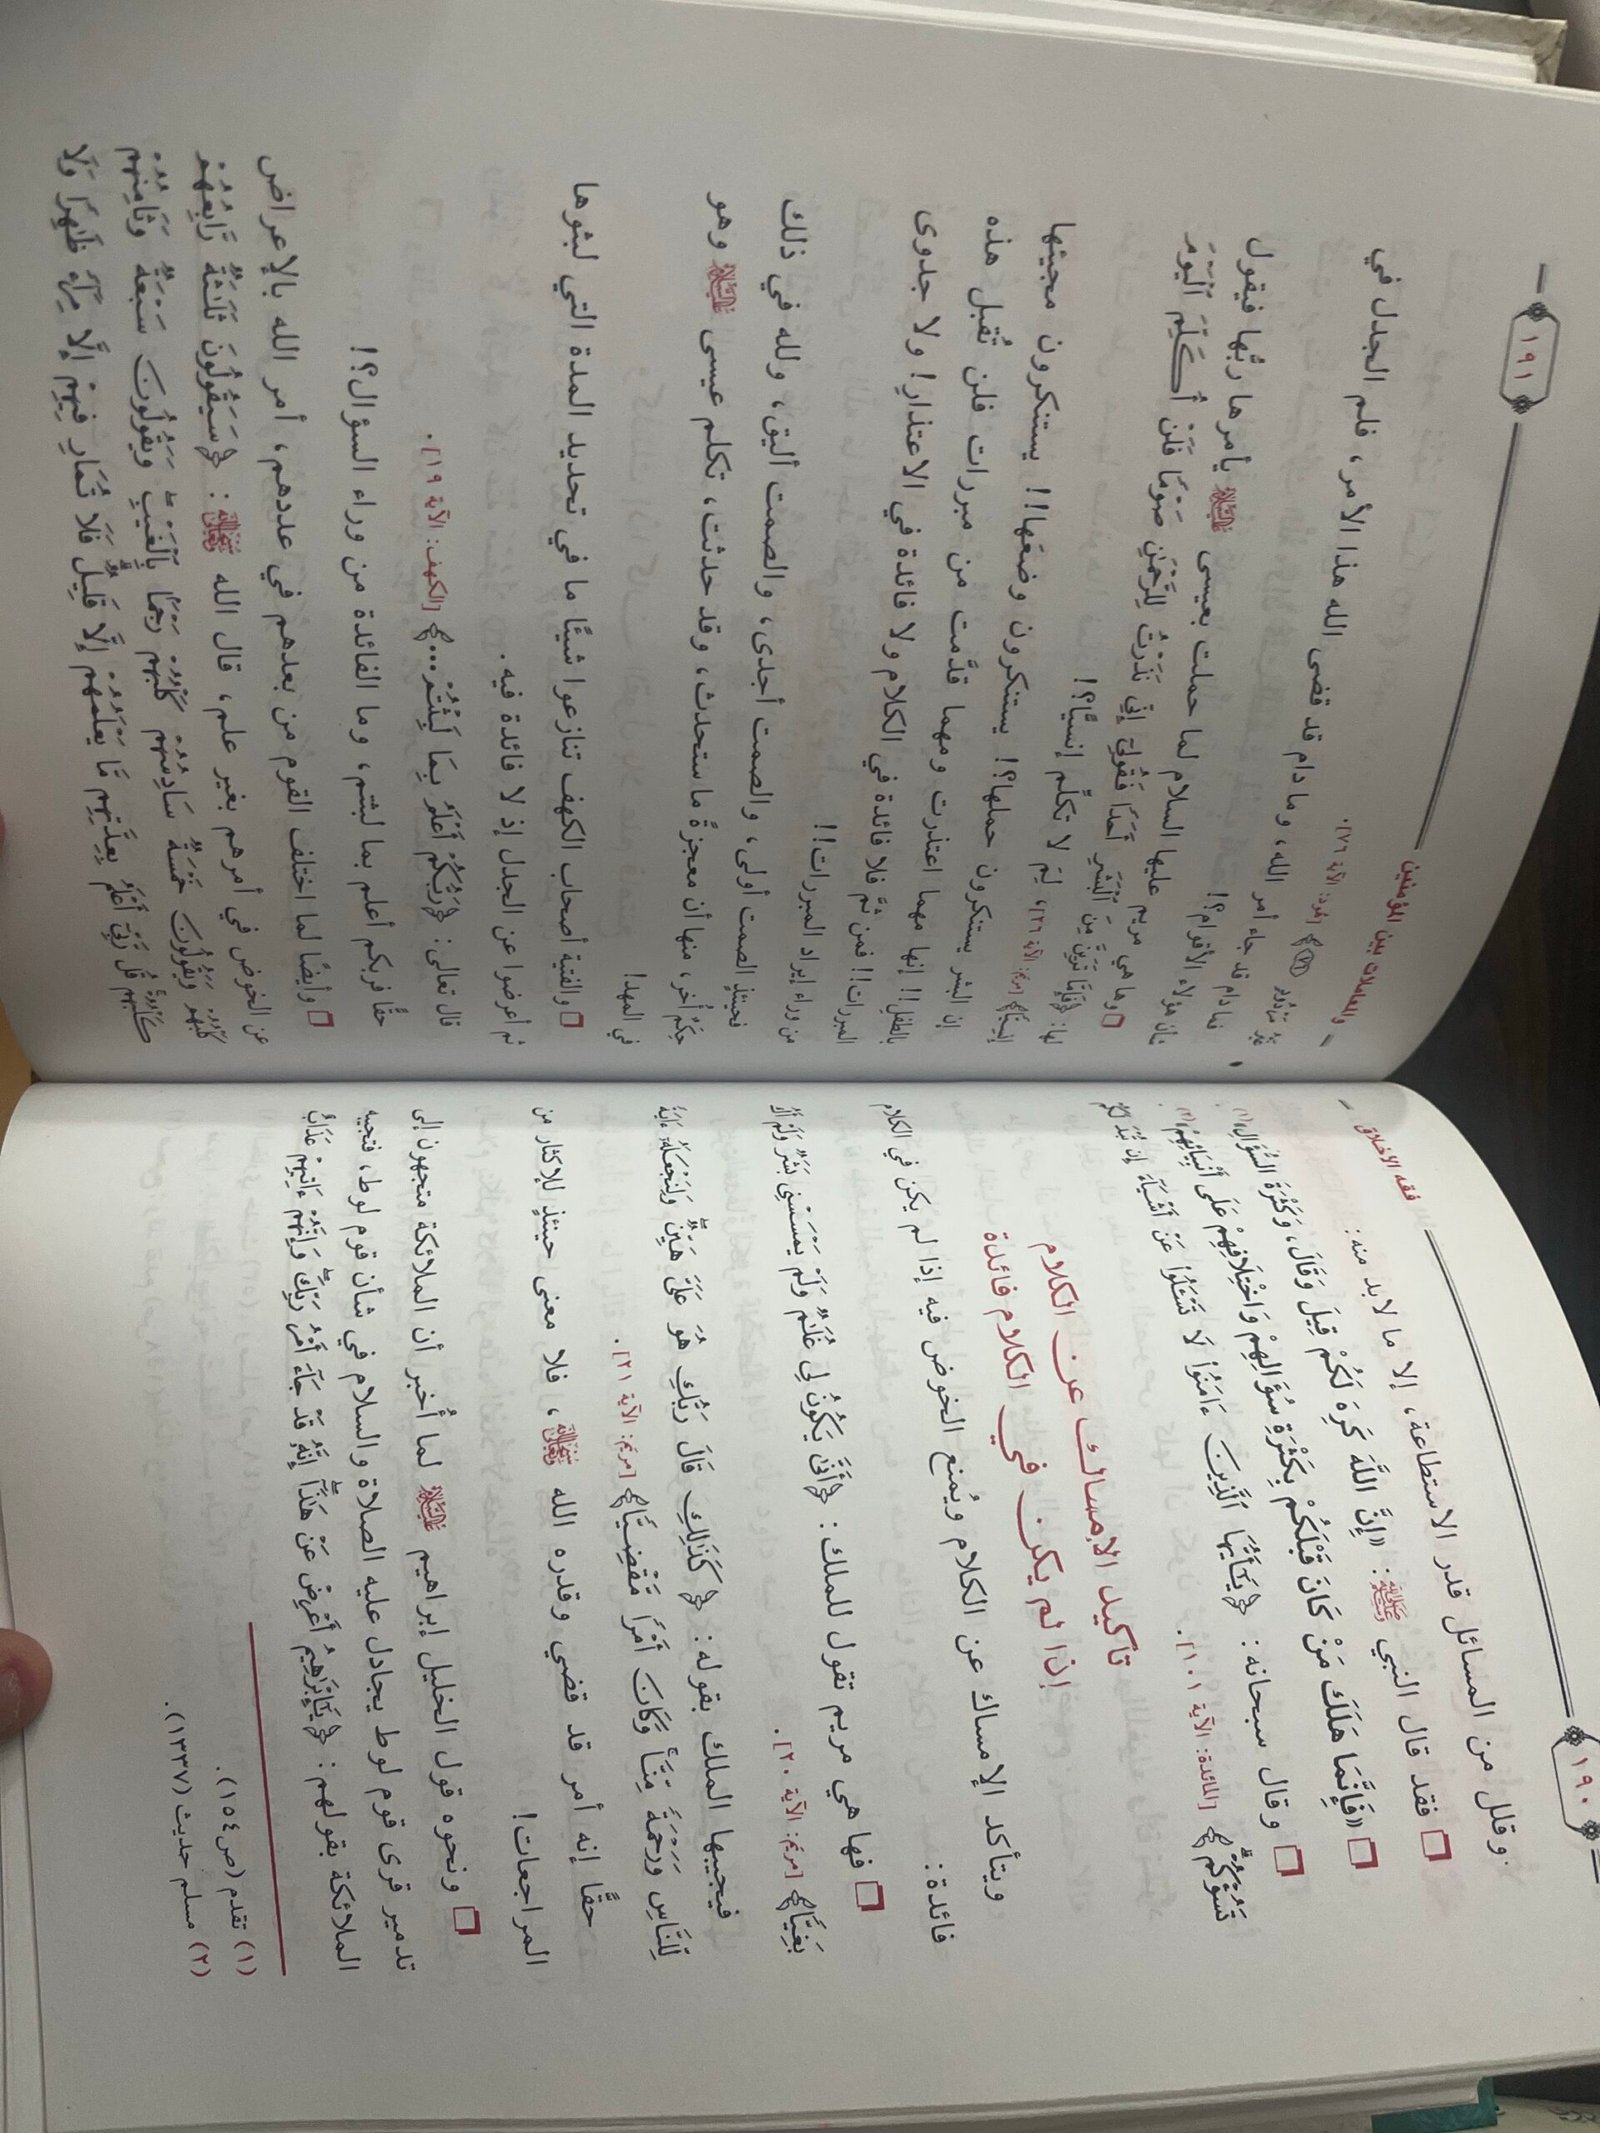 فقه الأخلاق
١٩٠
وقلل من المسائل قدر الاستطاعة، إلا ما لابد منه:
❑ فقد قال النبي ﷺ: «إِنَّ اللَّهَ كَرِهَ لَكُمْ قِيلَ وَقَالَ، وَكَثْرَةَ السُّؤَالِ»(١).
❑ «فَإِنَّمَا هَلَكَ مَنْ كَانَ قَبْلَكُمْ بِكَثْرَةِ سُؤَالِهِمْ وَاخْتِلَافِهِمْ عَلَى أَنْبِيَائِهِمْ»(٢).
❑ وقال سبحانه: ﴿يَٰٓأَيُّهَا ٱلَّذِينَ ءَامَنُوا۟ لَا تَسْـَٔلُوا۟ عَنْ أَشْيَآءَ إِن تُبْدَ لَكُمْ
تَسُؤْكُمْ﴾ [المائدة: الآية ١٠١].
تأكيد الإمساك عن الكلام
إذا لم يكن في الكلام فائدة
ويتأكد الإمساك عن الكلام ويُمنع الخوض فيه إذا لم يكن في الكلام
فائدة:
❑ فها هي مريم تقول للملك: ﴿أَنَّىٰ يَكُونُ لِى غُلَٰمٌ وَلَمْ يَمْسَسْنِى بَشَرٌ وَلَمْ أَكُ
بَغِيًّا﴾ [مريم: الآية ٢٠].
فيجيبها الملك بقوله: ﴿كَذَٰلِكِ قَالَ رَبُّكِ هُوَ عَلَىَّ هَيِّنٌ ۖ وَلِنَجْعَلَهُۥٓ ءَايَةً
لِّلنَّاسِ وَرَحْمَةً مِّنَّا ۚ وَكَانَ أَمْرًا مَّقْضِيًّا﴾ [مريم: الآية ٢١].
حقًّا إنه أمر قد قضي وقدره الله ﷾، فلا معنى حينئذٍ للإكثار من
المراجعات!
❑ ونحوه قول الخليل إبراهيم ﵇ لما أُخبر أن الملائكة متجهون إلى
تدمير قرى قوم لوط يجادل عليه الصلاة والسلام في شأن قوم لوط، فتجيبه
الملائكة بقولهم: ﴿يَٰٓإِبْرَٰهِيمُ أَعْرِضْ عَنْ هَٰذَآ ۖ إِنَّهُۥ قَدْ جَآءَ أَمْرُ رَبِّكَ ۖ وَإِنَّهُمْ ءَاتِيهِمْ عَذَابٌ
(١) تقدم (ص١٥٤).
(٢) مسلم حديث (١٣٣٧).
والمعاملات بين المؤمنين
١٩١
غَيْرُ مَرْدُودٍ ﴿٧٦﴾﴾ [هود: الآية ٧٦].
فما دام قد جاء أمر الله، وما دام قد قضى الله هذا الأمر، فلم الجدل في
شأن هؤلاء الأقوام؟!
❑ وها هي مريم عليها السلام لما حملت بعيسى ﵇ يأمرها ربُّها فيقول
لها: ﴿فَإِمَّا تَرَيِنَّ مِنَ ٱلْبَشَرِ أَحَدًا فَقُولِىٓ إِنِّى نَذَرْتُ لِلرَّحْمَٰنِ صَوْمًا فَلَنْ أُكَلِّمَ ٱلْيَوْمَ
إِنسِيًّا﴾ [مريم: الآية ٢٦]، لِمَ لا تكلِّم إنسيًّا؟!
إن البشر يستنكرون حملها؟! يستنكرون وضعَها!! يستنكرون مجيئها
بالطفل!! إنها مهما اعتذرت ومهما قدَّمت من مبررات فلن تُقبل هذه
المبررات!! فمن ثمَّ فلا فائدة في الكلام ولا فائدة في الاعتذارِ! ولا جدوى
من وراء إيراد المبررات!!
فحينئذٍ الصمت أولى، والصمت أجدى، والصمت أليق، ولله في ذلك
حِكَمٌ أُخر، منها أن معجزةً ما ستحدث، وقد حدثت، تكلم عيسى ﵇ وهو
في المهد!
❑ والفتية أصحاب الكهف تنازعوا شيئًا ما في تحديد المدة التي لبثوها
ثم أعرضوا عن الجدل إذ لا فائدة فيه.
قال تعالى: ﴿رَبُّكُمْ أَعْلَمُ بِمَا لَبِثْتُمْ...﴾ [الكهف: الآية ١٩].
حقًّا فربكم أعلم بما لبثتم، وما الفائدة من وراء السؤال؟!
❑ وأيضًا لما اختلف القوم من بعدهم في عددهم، أمر الله بالإعراض
عن الخوض في أمرهم بغير علم، قال الله ﷾: ﴿سَيَقُولُونَ ثَلَٰثَةٌ رَّابِعُهُمْ
كَلْبُهُمْ وَيَقُولُونَ خَمْسَةٌ سَادِسُهُمْ كَلْبُهُمْ رَجْمًۢا بِٱلْغَيْبِ ۖ وَيَقُولُونَ سَبْعَةٌ وَثَامِنُهُمْ
كَلْبُهُمْ ۚ قُل رَّبِّىٓ أَعْلَمُ بِعِدَّتِهِم مَّا يَعْلَمُهُمْ إِلَّا قَلِيلٌ ۗ فَلَا تُمَارِ فِيهِمْ إِلَّا مِرَآءً ظَٰهِرًا وَلَا